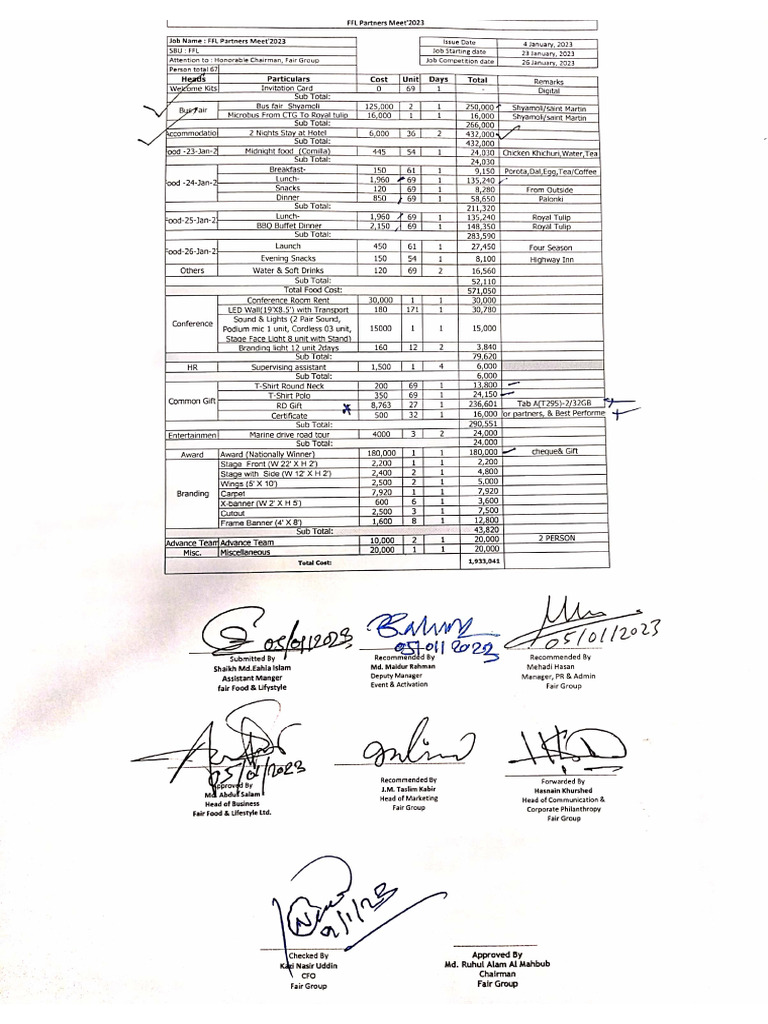 FFL Partners Meet'2023
Job Name : FFL Partners Meet'2023
SBU : FFL
Attention to : Honorable Chairman, Fair Group
Person total 67
Issue Date 4 January, 2023
Job Starting date 23 January, 2023
Job Competition date 26 January, 2023
Heads Particulars Cost Unit Days Total Remarks
Welcome Kits Invitation Card 0 69 1 - Digital
Sub Total:
Bus Fair Bus fair Shyamoli 125,000 2 1 250,000 Shyamoli/saint Martin
Microbus From CTG To Royal tulip 16,000 1 1 16,000 Shyamoli/saint Martin
Sub Total: 266,000
Accommodatio 2 Nights Stay at Hotel 6,000 36 2 432,000
Sub Total: 432,000
ood -23-Jan-2 Midnight food (Comilla) 445 54 1 24,030 Chicken Khichuri,Water,Tea
Sub Total: 24,030
ood -24-Jan-2 Breakfast- 150 61 1 9,150 Porota,Dal,Egg,Tea/Coffee
Lunch- 1,960 69 1 135,240
Snacks 120 69 1 8,280 From Outside
Dinner 850 69 1 58,650 Palonki
Sub Total: 211,320
ood-25-Jan-2 Lunch- 1,960 69 1 135,240 Royal Tulip
BBQ Buffet Dinner 2,150 69 1 148,350 Royal Tulip
Sub Total: 283,590
ood-26-Jan-2 Launch 450 61 1 27,450 Four Season
Evening Snacks 150 54 1 8,100 Highway Inn
Others Water & Soft Drinks 120 69 2 16,560
Sub Total: 52,110
Total Food Cost: 571,050
Conference Conference Room Rent 30,000 1 1 30,000
LED Wall(19'X8.5') with Transport 180 171 1 30,780
Sound & Lights (2 Pair Sound,
Podium mic 1 unit, Cordless 03 unit, 15000 1 1 15,000
Stage Face Light 8 unit with Stand)
Branding light 12 unit 2days 160 12 2 3,840
Sub Total: 79,620
HR Supervising assistant 1,500 1 4 6,000
Sub Total: 6,000
Common Gift T-Shirt Round Neck 200 69 1 13,800
T-Shirt Polo 350 69 1 24,150
RD Gift 8,763 27 1 236,601 Tab A(T295)-2/32GB
Certificate 500 32 1 16,000 or partners, & Best Performe
Sub Total: 290,551
Entertainmen Marine drive road tour 4000 3 2 24,000
Sub Total: 24,000
Award Award (Nationally Winner) 180,000 1 1 180,000 cheque& Gift
Branding Stage Front (W 22' X H 2') 2,200 1 1 2,200
Stage with Side (W 12' X H 2') 2,400 2 1 4,800
Wings (5' X 10') 2,500 2 1 5,000
Carpet 7,920 1 1 7,920
X-banner (W 2' X H 5') 600 6 1 3,600
Cutout 2,500 3 1 7,500
Frame Banner (4' X 8') 1,600 8 1 12,800
Sub Total: 43,820
Advance Team Advance Team 10,000 2 1 20,000 2 PERSON
Misc. Miscellaneous 20,000 1 1 20,000
Total Cost: 1,933,041
05/01/2023
05/01/2023
05/01/2023
Submitted By
Shaikh Md.Eahia Islam
Assistant Manger
fair Food & Lifystyle
Recommended By
Md. Maidur Rahman
Deputy Manager
Event & Activation
Recommended By
Mehadi Hasan
Manager, PR & Admin
Fair Group
05/01/2023
Approved By
Md. Abdul Salam
Head of Business
Fair Food & Lifestyle Ltd.
Recommended By
J.M. Taslim Kabir
Head of Marketing
Fair Group
Forwarded By
Hasnain Khurshed
Head of Communication &
Corporate Philanthropy
Fair Group
Checked By
Kazi Nasir Uddin
CFO
Fair Group
Approved By
Md. Ruhul Alam Al Mahbub
Chairman
Fair Group